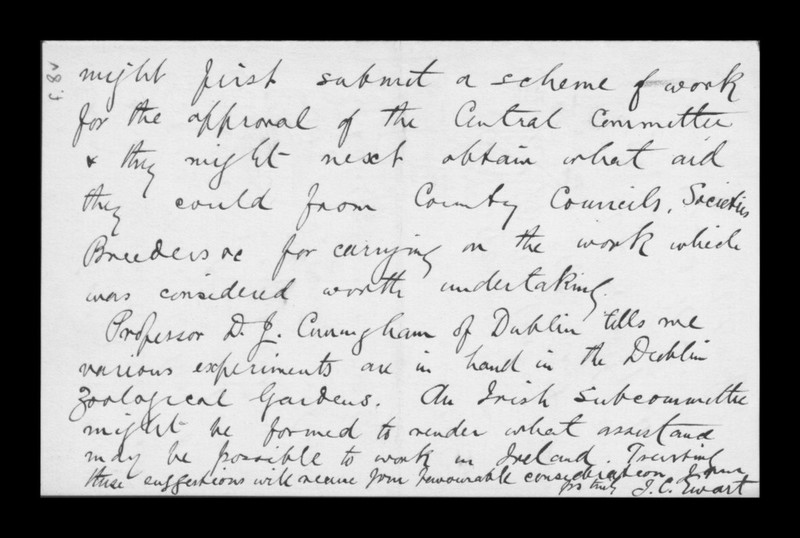 f.8v
might first submit a scheme of work
for the approval of the Central Committee
& they might next obtain what aid
they could from County Councils, Societies
Breeders &c for carrying on the work which
was considered worth undertaking.
Professor D. J. Cunningham of Dublin tells me
various experiments are in hand in the Dublin
Zoological Gardens. An Irish Subcommittee
might be formed to render what assistance
may be possible to work in Ireland. Trusting
these suggestions will receive your favourable consideration I am
yrs truly J. C. Ewart